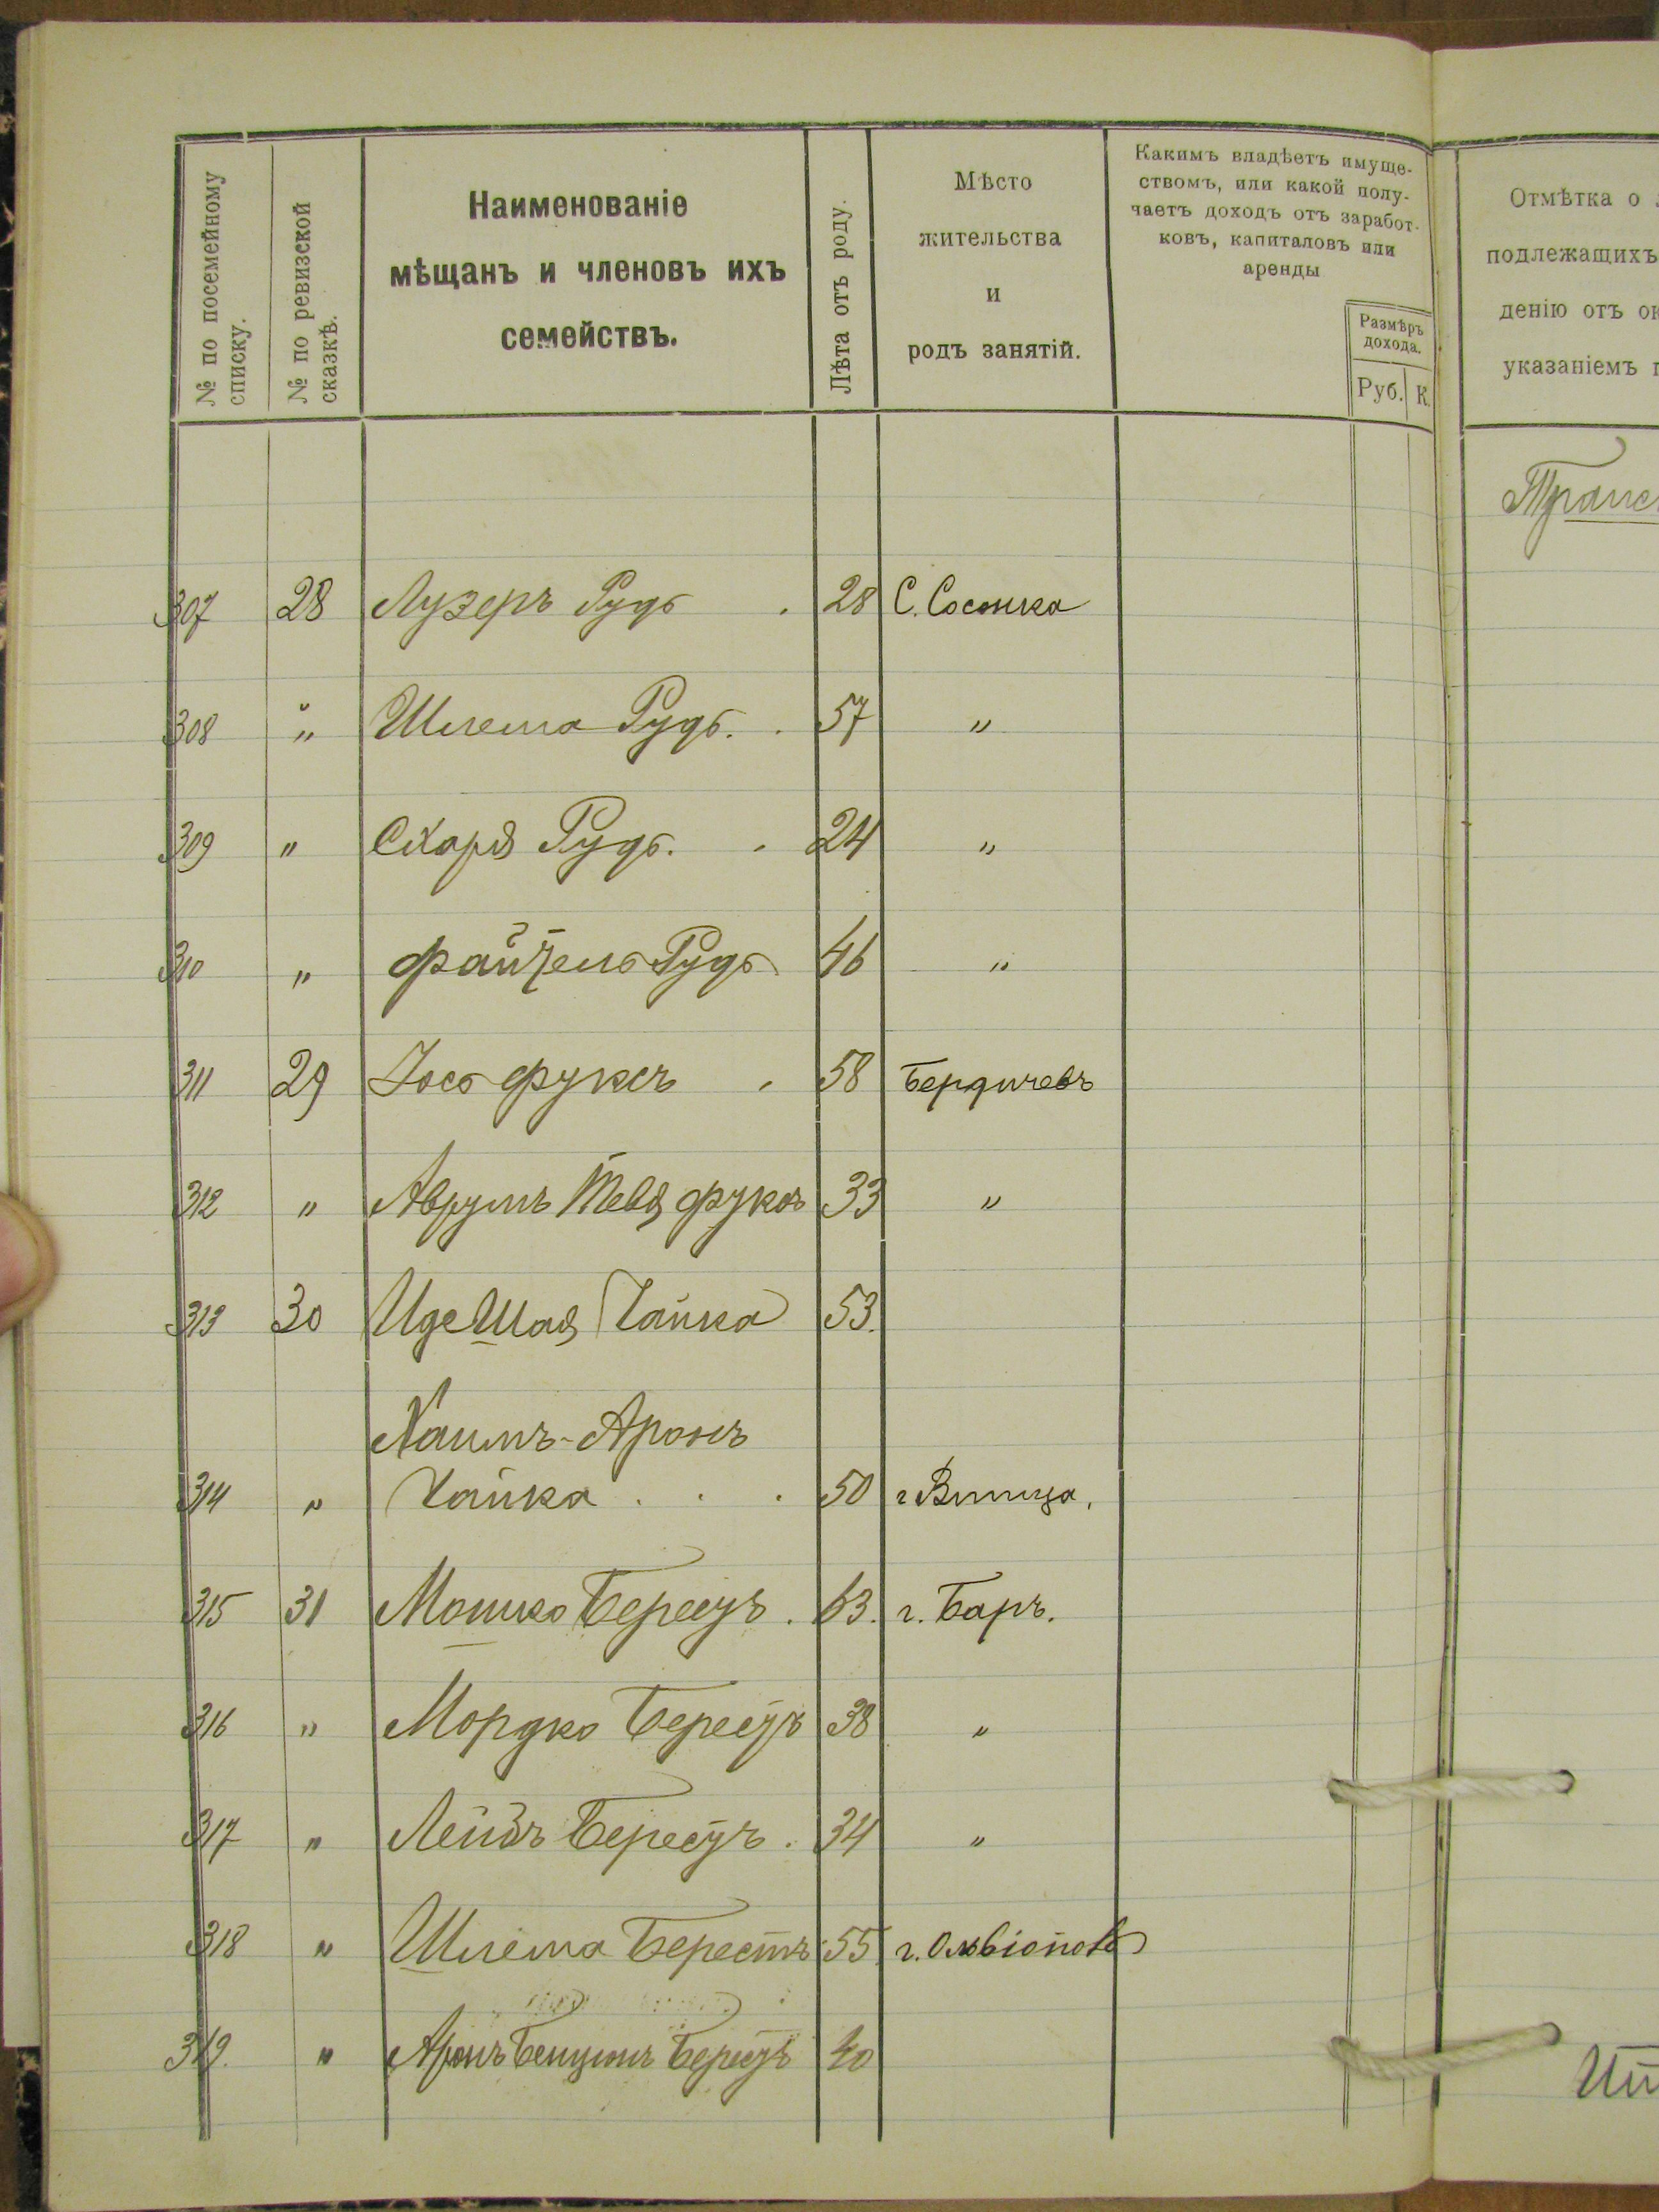 № по посемейному
списку.
№ по ревизской
сказкѣ.
Наименованіе
мѣщанъ и членовъ ихъ
семействъ.
Лѣта отъ роду.
Мѣсто
жительства
и
родъ занятій.
Какимъ владѣетъ имуще-
ствомъ, или какой полу-
чаетъ доходъ отъ заработ-
ковъ, капиталовъ или
аренды
Размѣръ
дохода.
Руб. К.
Отмѣтка о
подлежащихъ
денію отъ ок
указаніемъ
Транс
307 28 Лузеръ Рудь . 28 С. Сосонка
308 „ Шлема Рудь. . 57 „
309 „ Рудь. . 24 „
310 „ Файвель Рудь 46 „
311 29 Іось Фуксъ . 58 Бердичевъ
312 „ Аврумъ Тевя Фуксъ 33 „
313 30 Иде Шая Чайка 53.
Хаимъ-Аронъ
314 „ Чайка . . . 50 г Виница,
315 31 Мошко Берестъ . 63. г. Баръ.
316 „ Мордко Берестъ 38 „
317 „ Лейбъ Берестъ . 34 „
318 „ Шлема Берестъ 55 г. Ольвіополь
319. „ Аронъ Бенционъ Берестъ 40
Ит